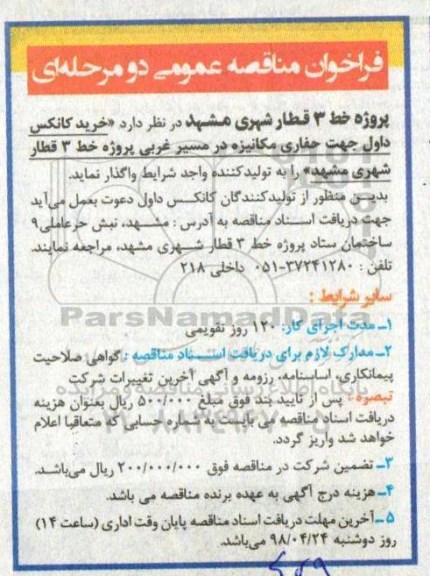 فراخوان مناقصه عمومی دو مرحله‌ای
پروژه خط ۳ قطار شهری مشهد در نظر دارد «خرید کانکس
داول جهت حفاری مکانیزه در مسیر غربی پروژه خط ۳ قطار
شهری مشهد» را به تولیدکننده واجد شرایط واگذار نماید.
بدین منظور از تولیدکنندگان کانکس داول دعوت بعمل می‌آید
جهت دریافت اسناد مناقصه به آدرس : مشهد، نبش حرعاملی ۹
ساختمان ستاد پروژه خط ۳ قطار شهری مشهد، مراجعه نمایند.
تلفن : ۳۷۲۴۱۲۸۰-۰۵۱ داخلی ۲۱۸
سایر شرایط :
۱- مدت اجرای کار: ۱۲۰ روز تقویمی
۲- مدارک لازم برای دریافت اسناد مناقصه : گواهی صلاحیت
پیمانکاری، اساسنامه، رزومه و آگهی آخرین تغییرات شرکت
تبصره : پس از تایید بند فوق مبلغ ۵۰۰/۰۰۰ ریال بعنوان هزینه
دریافت اسناد مناقصه می بایست به شماره حسابی که متعاقبا اعلام
خواهد شد واریز گردد.
۳- تضمین شرکت در مناقصه فوق ۲۰۰/۰۰۰/۰۰۰ ریال می‌باشد.
۴- هزینه درج آگهی به عهده برنده مناقصه می باشد.
۵- آخرین مهلت دریافت اسناد مناقصه پایان وقت اداری (ساعت ۱۴)
روز دوشنبه ۹۸/۰۴/۲۴ می‌باشد.
ParsNamadData